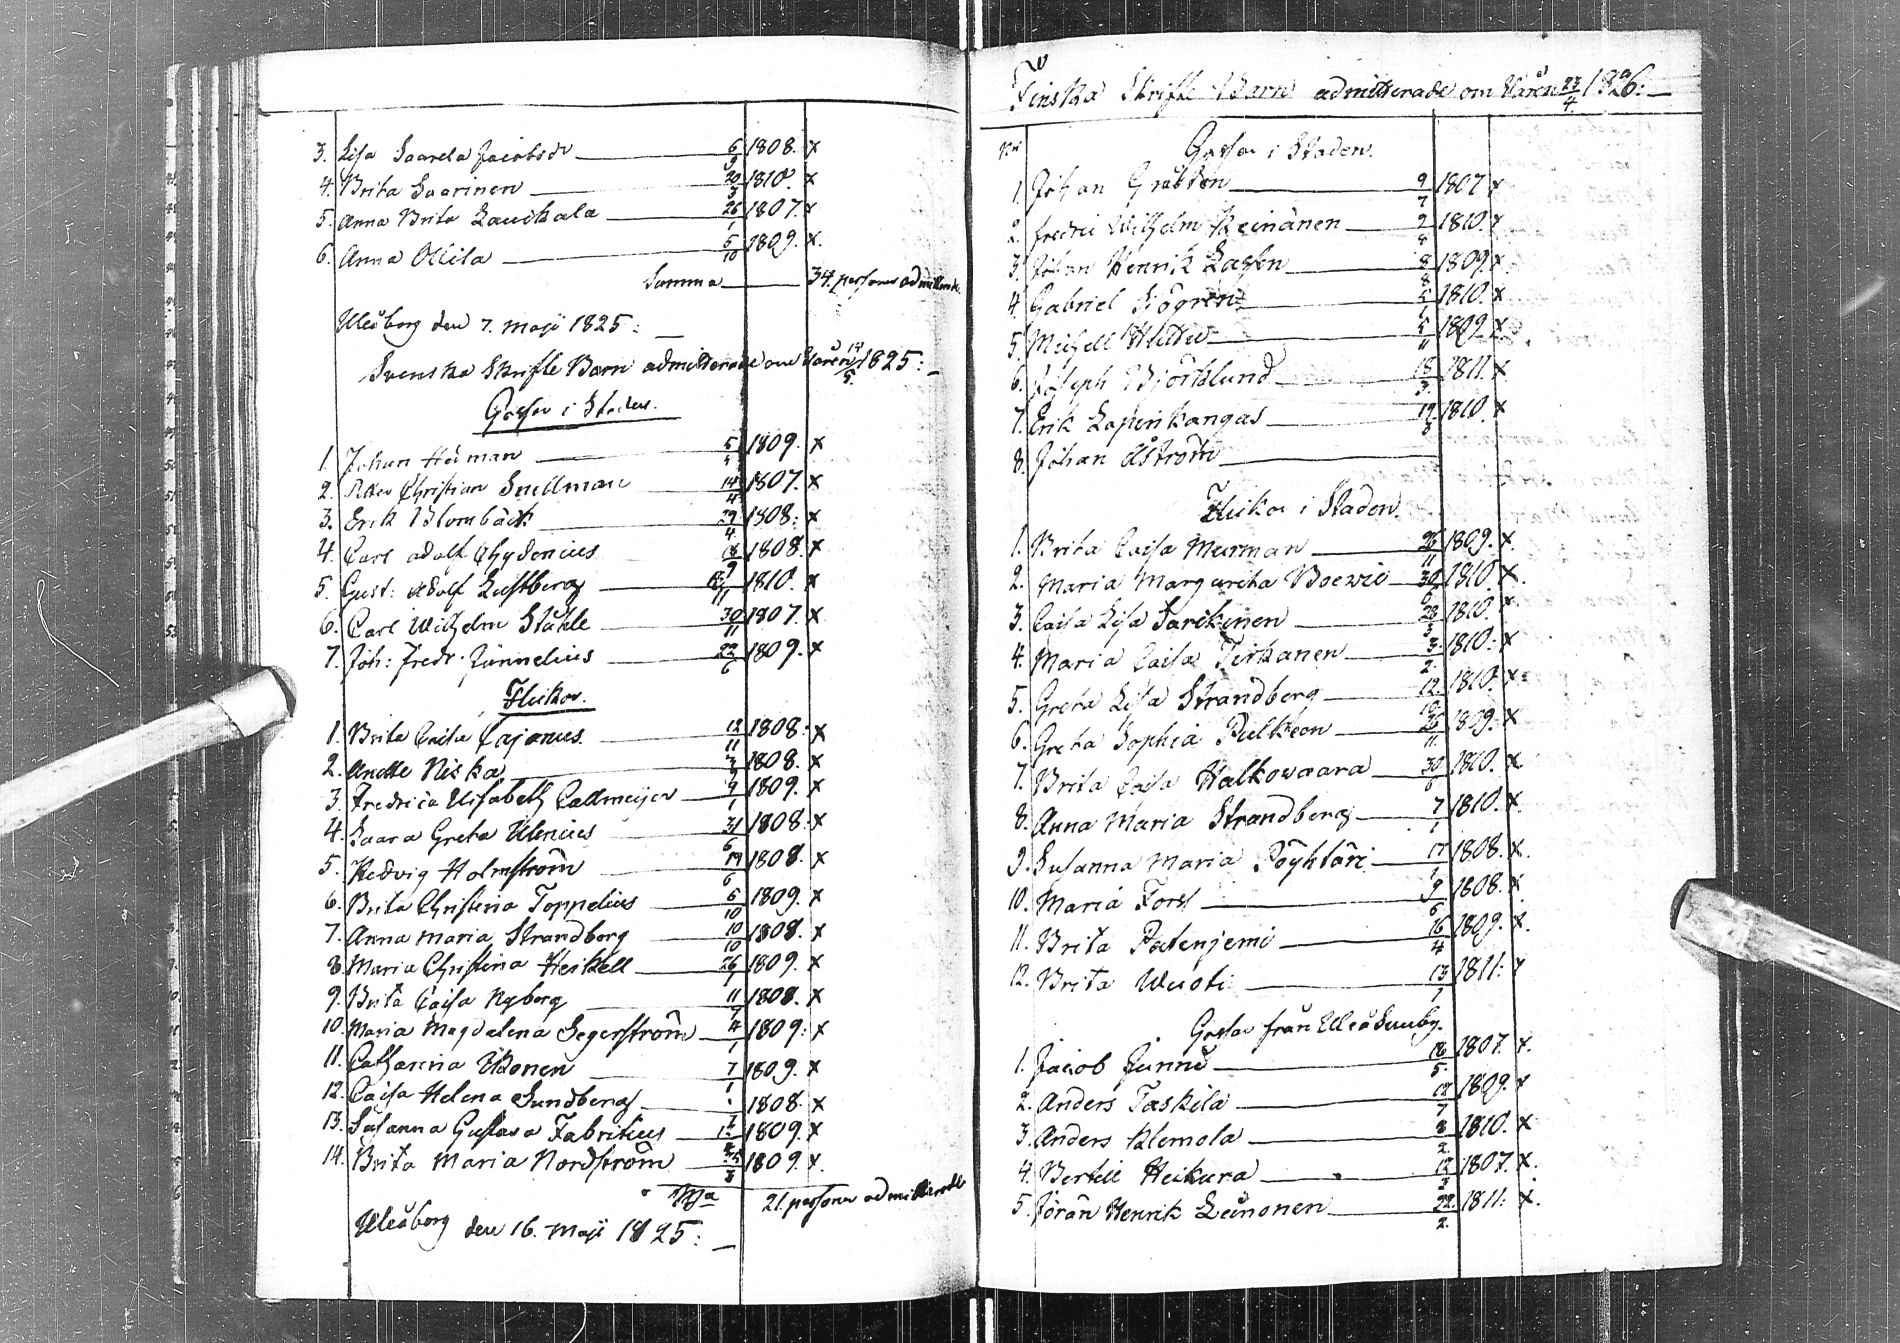 3. Lisa Saarela Jacobsdr 6/9 1808. x
4. Brita Saarinen 20/3 1810. x
5. Anna Brita Lauckala 26/1 1807. x
6. Anna Ollila 5/10 1809. x.
Summa 34. personer admitterade.
Uleåborg den 7. Maji 1825:
Svenska Skrifte Barn admitterade om Våren 14/5 1825:
Gossar i Staden.
1. Johan Heiman 5/4 1809. x
2. Petter Christian Snellman 14/4 1807. x
3. Erik Blombäck 29/4 1808: x
4. Carl Adolf Chydenius 18/9 1808. x
5. Gust: Adolf Lustberg 1810. x
6. Carl Wilhelm Ståhle 30/11 1807. x
7. Joh: Fredr. Junnelius 22/6 1809. x
Flickor.
1. Brita Caisa Cajanus 12/11 1808. x
2. Anette Niska 1808. x
3. Fredrica Elisabeth Callmeijer 9/1 1809. x
4. Saara Greta Ulenius 31 1808. x
5. Hedvig Holmström 19/6 1808. x
6. Brita Christina Toppelius 6/10 1809. x
7. Anna Maria Strandberg 10/10 1808. x
8. Maria Christina Heikell 26 1809. x
9. Brita Caisa Nyberg 11 1808. x
10. Maria Magdalena Segerström 4/1 1809: x
11. Catharina Ukonen 7/1 1809. x
12. Caisa Helena Sundberg 1808. x
13. Susanna Gustava Fabritius 1809. x
14. Brita Maria Nordström 1809. x.
Sa 21. personer admitterade
Uleåborg den 16. Maji 1825:
Finska Skrifte Barn admitterade om Våren 23/4 1826:
No Gossar i Staden.
1. Johan Grahn 9/7 1807 x
2. Fredric Wilhelm Keinänen 2/8 1810. x
3. Johan Henrik Lassen 8/8 1809. x
4. Gabriel Sjögren 5/1 1810. x
5. Michell 5/11 1809. x
6. Joseph Björklund 18/3 1811. x
7. Erik Lapinkangas 19/8 1810. x
8. Johan Åström
Flickor i Staden.
1. Brita Caisa Murman 26/11 1809. x.
2. Maria Margareta Boewie 30/6 1810. x.
3. Caisa Lisa Sarkinen 28/3 1810. x
4. Maria Caisa Tirkanen 3/2. 1810: x
5. Greta Lisa Strandberg 12/10 1810. x
6. Greta Sophia Pulkean 26/11 1809. x
7. Brita Caisa Halkowaara 30/6 1810. x
8. Anna Maria Strandberg 7/1 1810. x
9. Susanna Maria Pöyhtäri 17/1 1808. x.
10. Maria Forss 9/6 1808. x
11. Brita Patenjemi 16/4 1809. x.
12. Brita Wuoti 13/1 1811: x
Gossar från Uleå Sanby.
1. Jacob Junnu 18/5. 1807. x.
2. Anders Taskila 18/7 1809. x
3. Anders Klemola 8/2 1810. x
4. Bertell Heikura 12/3 1807. x.
5. Jöran Henrik Leinonen 22./2. 1811: x.